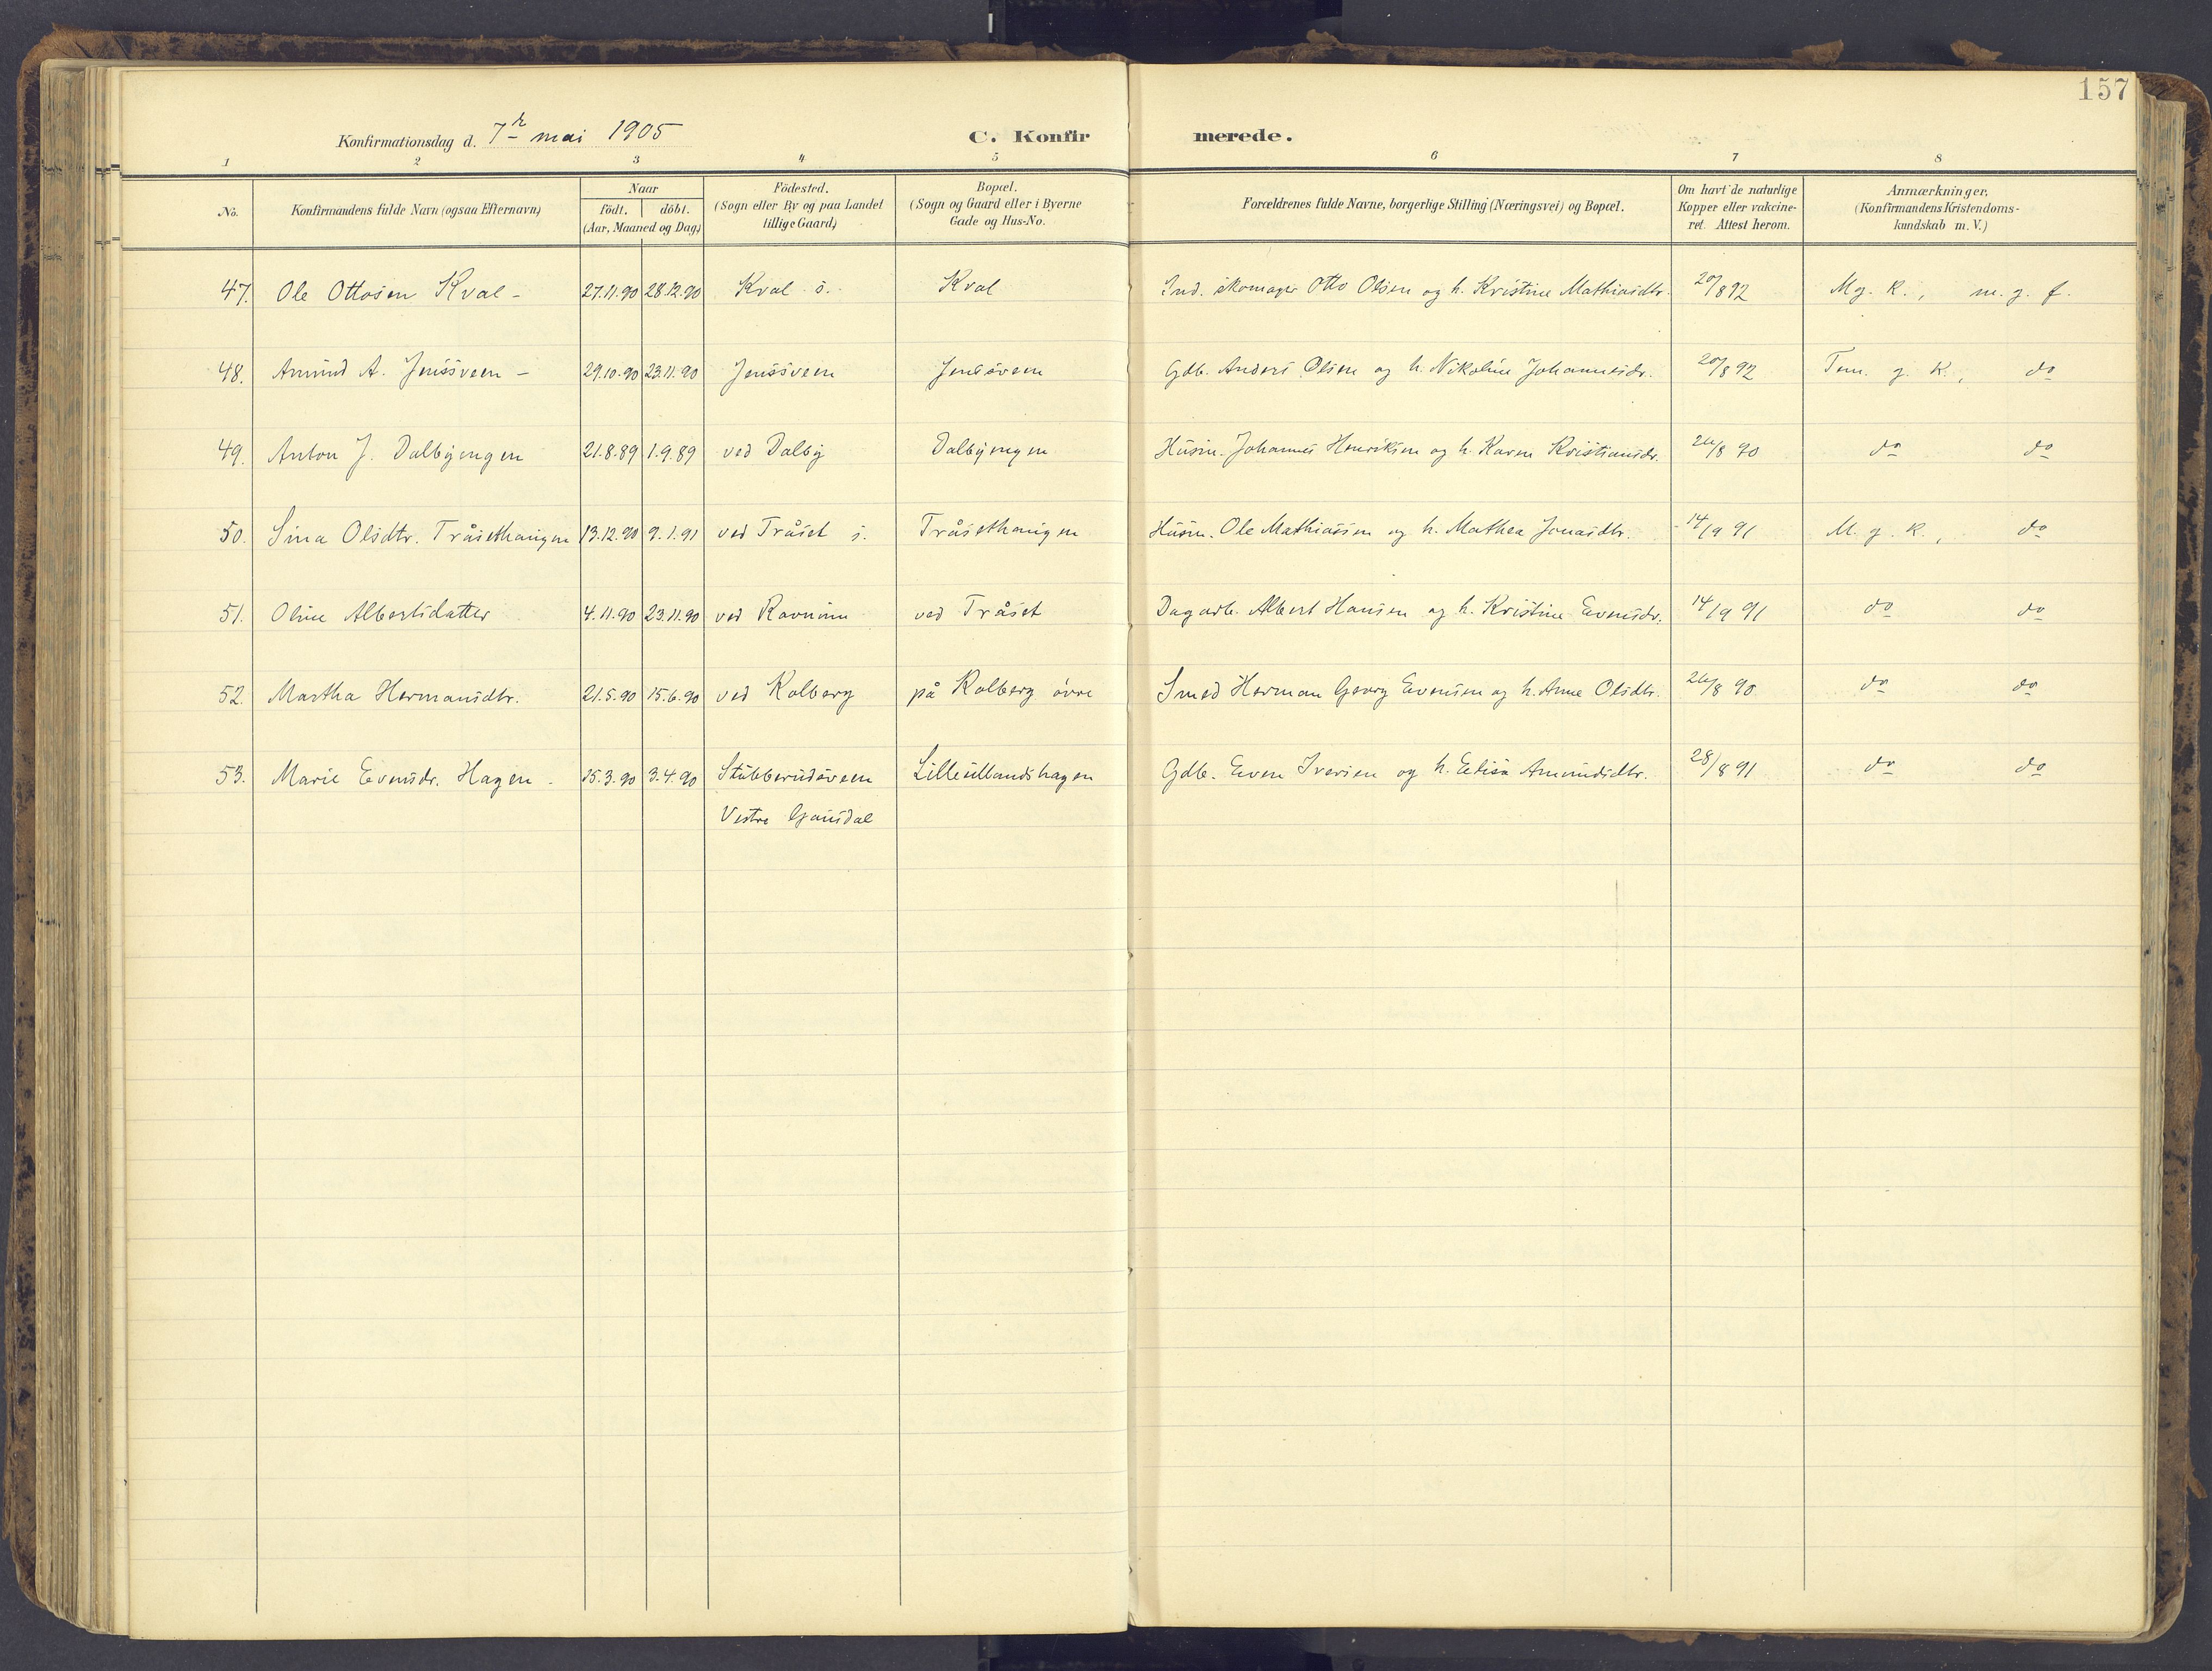 157
Konfirmationsdag d. 7de mai 1905 C. Konfir merede.
1 2 3 4 5 6 7 8
No. Konfirmandens fulde Navn (ogsaa Efternavn) Naar födt. döbt. (Aar, Maaned og Dag) Födested. (Sogn eller By og paa Landet tillige Gaard) Bopæl. (Sogn og Gaard eller i Byerne Gade og Hus-No. Forældrenes fulde Navne, borgerlige Stilling (Næringsvei) og Bopæl. Om havt de naturlige Kopper eller vakcineret. Attest herom. Anmærkninger. (Konfirmandens Kristendomskundskab m. V.)
47. Ole Ottosen Kval - 27.11.90 28.12.90 Kval s. Kval Ind. skomager Otto Olsen og h. Kristine Mathiasdtr. 20/8 92 Mg. K., m. g. f.
48. Amund A. Jenssveen - 29.10.90 23.11.90 Jenssveen Jenssveen Gdb. Anders Olsen og h. Nikoline Johannesdr. 20/8 92 Tem. g. K., do
49. Anton J. Dalbyengen 21.8.89 1.9.89 ved Dalby Dalbyengen Husm. Johannes Henriksen og h. Karen Kristiansdr. 26/8 90 do do
50. Sina Olsdtr. Tråsethaugen 13.12.90 9.1.91 ved Tråset s. Tråsethaugen Husm. Ole Mathiassen og h. Mathea Jonasdtr. 14/9 91 M. g. K., do
51. Oline Albertsdatter 4.11.90 23.11.90 ved ved Tråset Dagarb. Albert Hansen og h. Kristine Evensdr. 14/9 91 do do
52. Martha Hermansdtr. 21.5.90 15.6.90 ved Kolberg på Kolberg øvre Smed Herman Georg Evensen og h. Anne Olsdtr. 26/8 90. do do
53. Marie Evensdr. Hagen - 15.3.90 3.4.90 Stubberudsveen Lilleullandshagen Gdb. Even Iversen og h. Elisa Amundsdtr. 28/8 91 do do
Vestre Gausdal